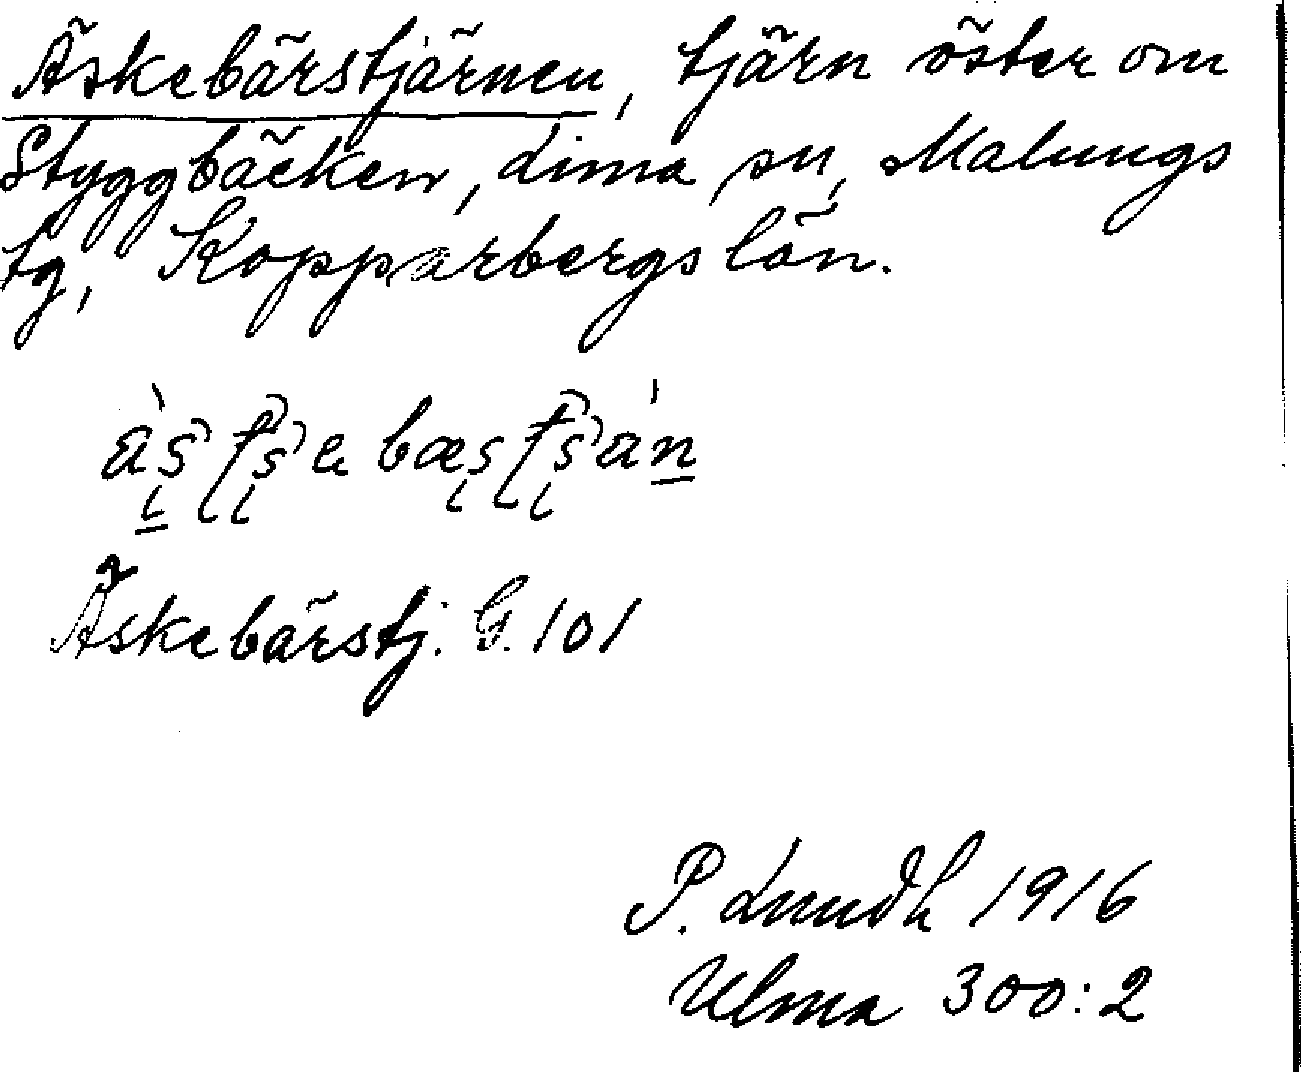 Äskebärstjärnen, tjärn öster om
Styggbäcken, Lima sn, Malungs
tg, Kopparbergs län.
Äskebärstj. G. 101
P. Lundh 1916
Ulma 300:2